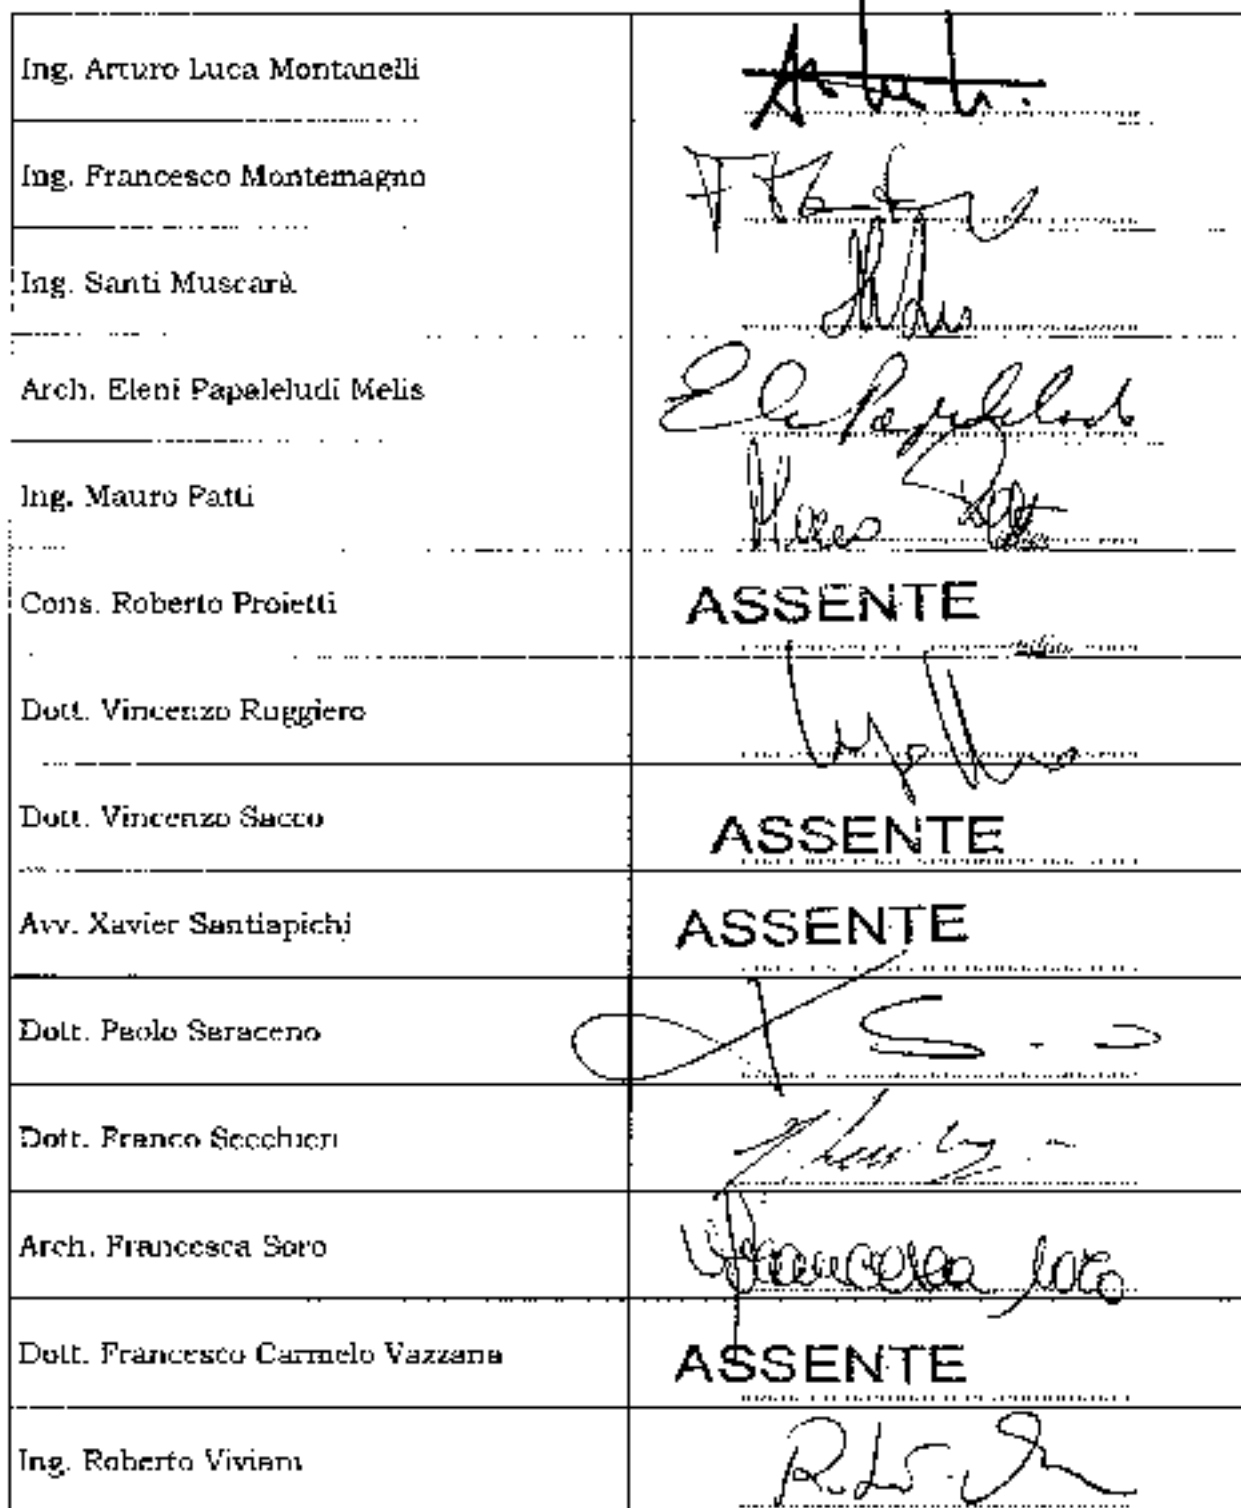 Ing. Arturo Luca Montanelli
Ing. Francesco Montemagno
Ing. Santi Muscarà
Arch. Eleni Papaleludi Melis
Ing. Mauro Patti
Cons. Roberto Proietti ASSENTE
Dott. Vincenzo Ruggiero
Dott. Vincenzo Sacco ASSENTE
Avv. Xavier Santiapichi ASSENTE
Dott. Paolo Saraceno
Dott. Franco Secchieri
Arch. Francesca Soro Francesca Soro
Dott. Francesco Carmelo Vazzana ASSENTE
Ing. Roberto Viviani